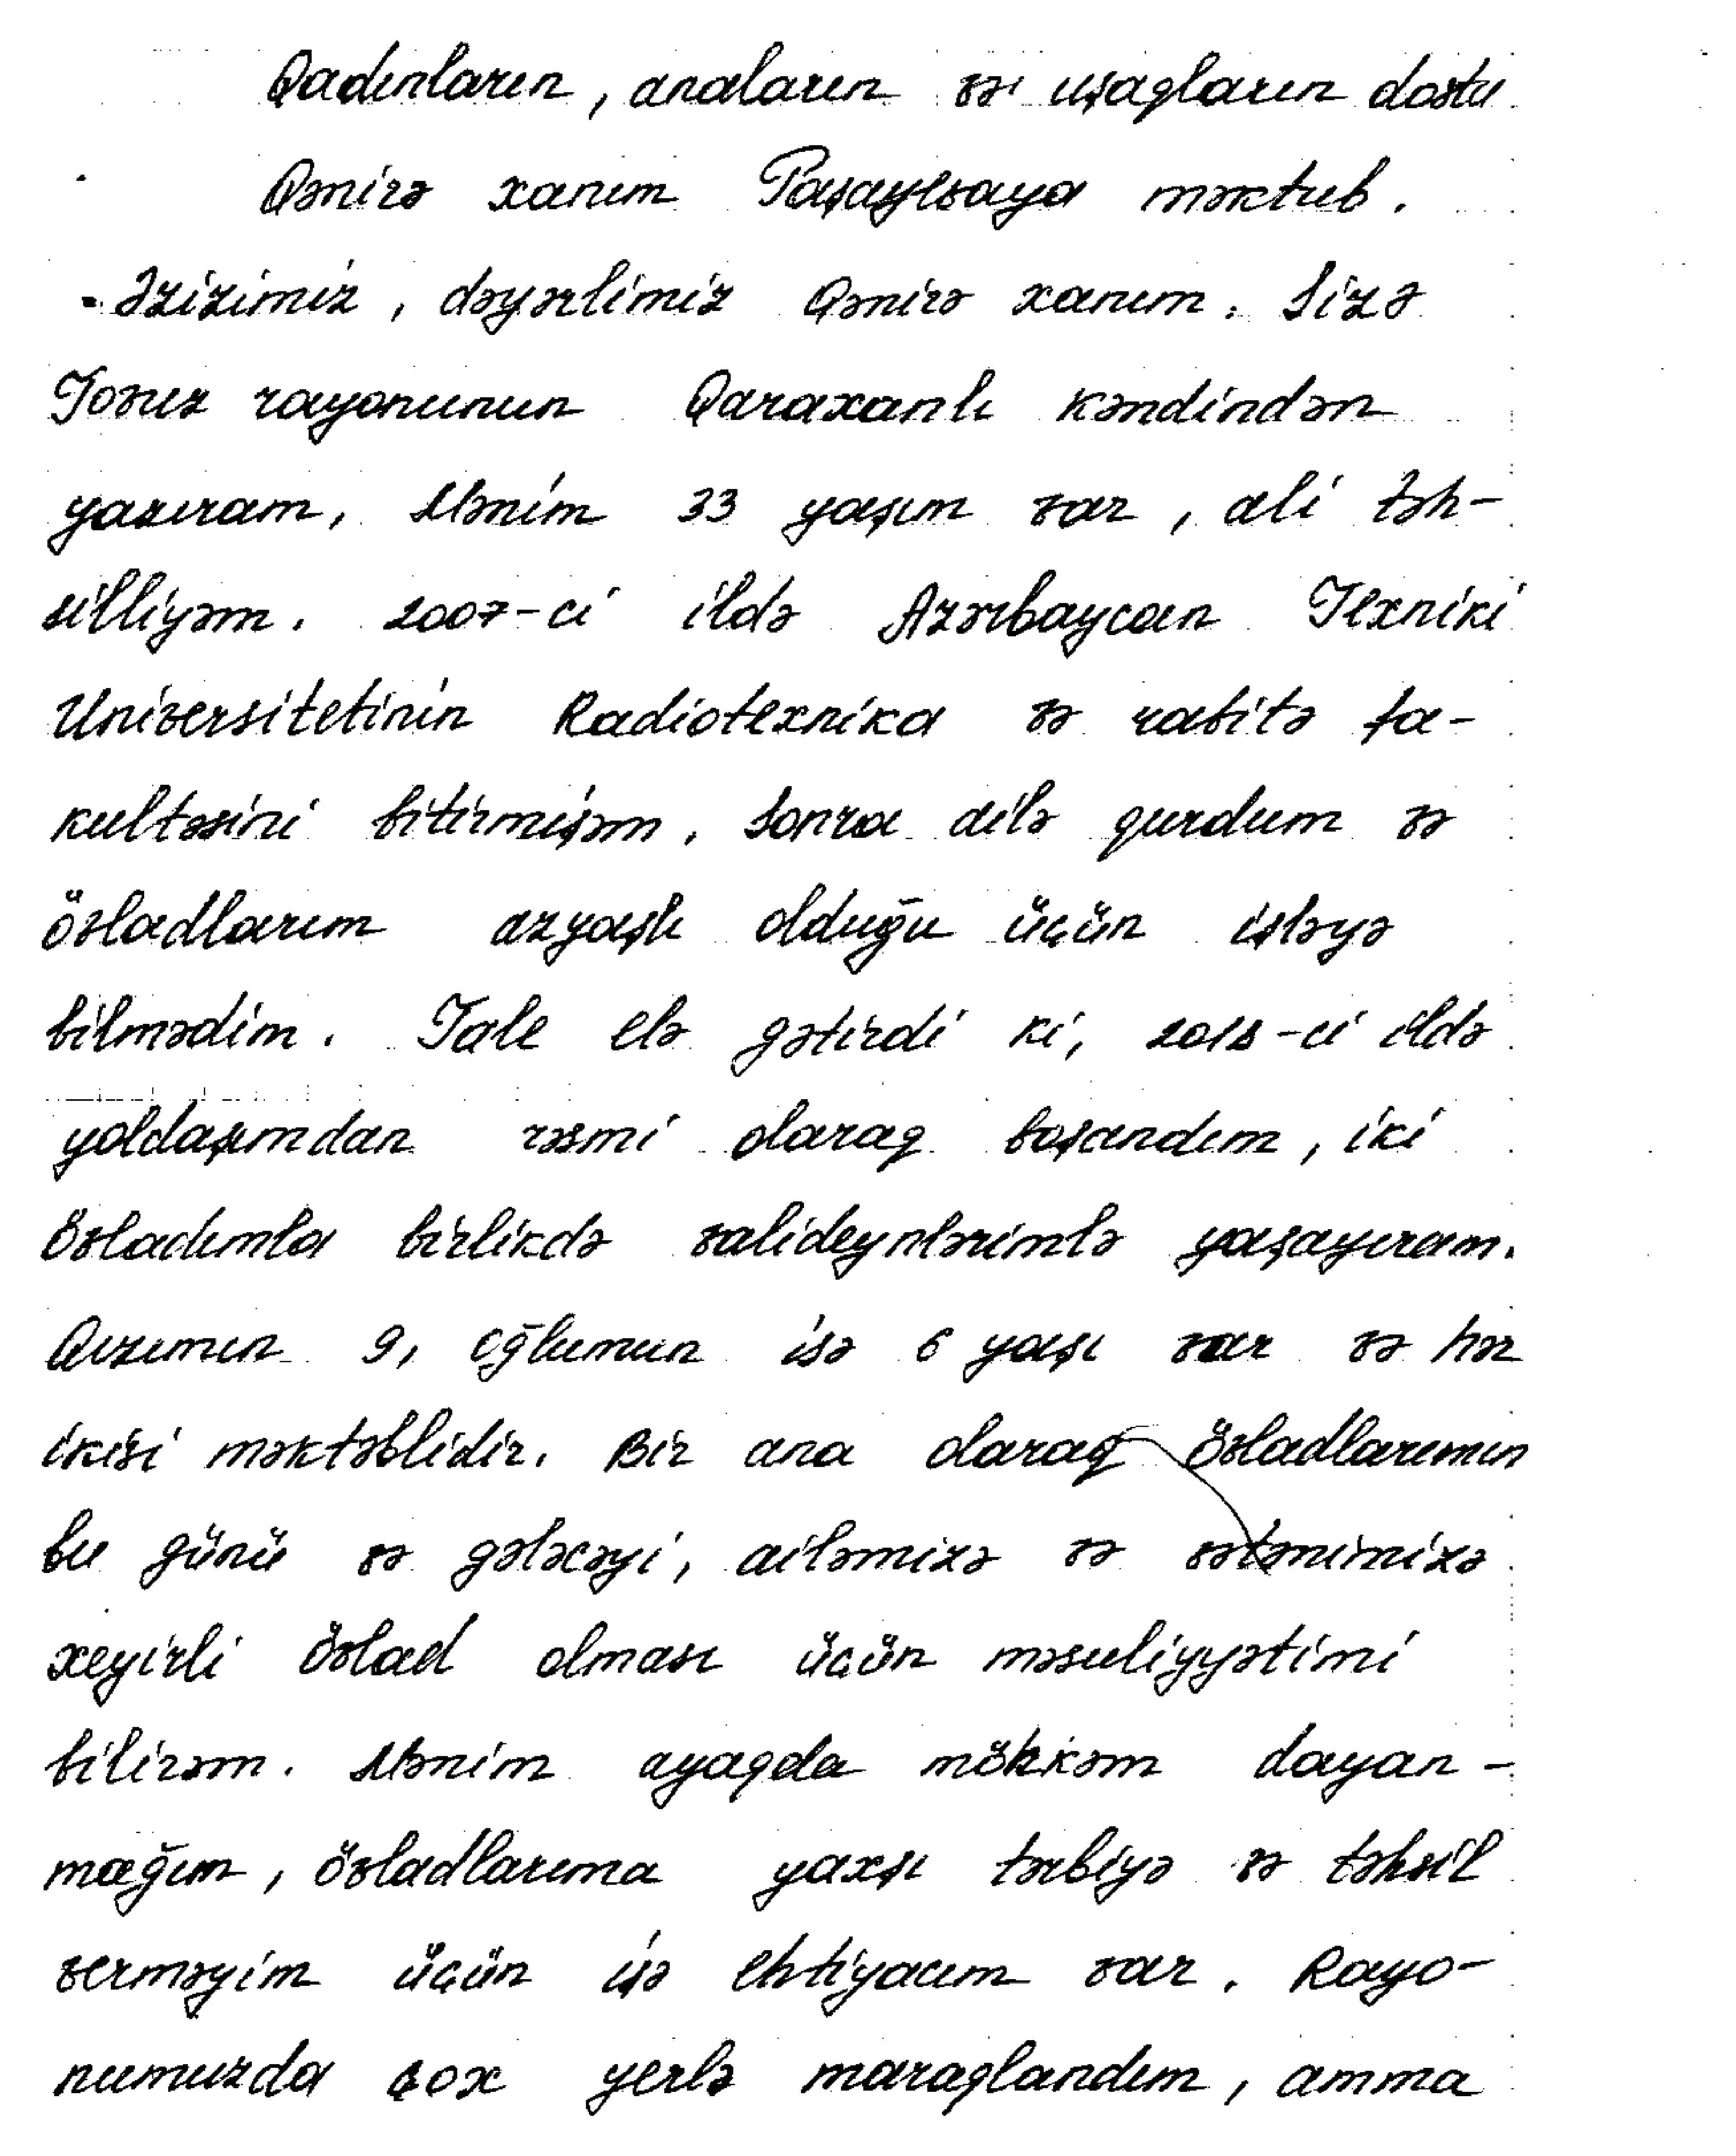 Qadınların, anaların və uşaqların dostu
Qənirə xanım Paşayevaya məktub.
Əzizimiz, dəyərlimiz Qənirə xanım. Sizə
Tovuz rayonunun Qaraxanlı kəndindən
yazıram, Mənim 33 yaşım var, ali təh-
silliyəm. 2007-ci ildə Azərbaycan Texniki
Universitetinin Radiotexnika və rabitə fa-
kultəsini bitirmişəm. Sonra ailə qurdum və
övladlarım azyaşlı olduğu üçün işləyə
bilmədim. Tale elə gətirdi ki, 2018-ci ildə
yoldaşımdan rəsmi olaraq boşandım, iki
övladımla birlikdə valideynlərimlə yaşayıram.
Qızımın 9, oğlumun isə 6 yaşı var və hər
ikisi məktəblidir. Bir ana olaraq övladlarımın
bu günü və gələcəyi, ailəmizə və vətənimizə
xeyirli övlad olması üçün məsuliyyətimi
bilirəm. Mənim ayaqda möhkəm dayan-
mağım, övladlarıma yaxşı tərbiyə və təhsil
verməyim üçün işə ehtiyacım var. Rayo-
numuzda çox yerlə maraqlandım, amma